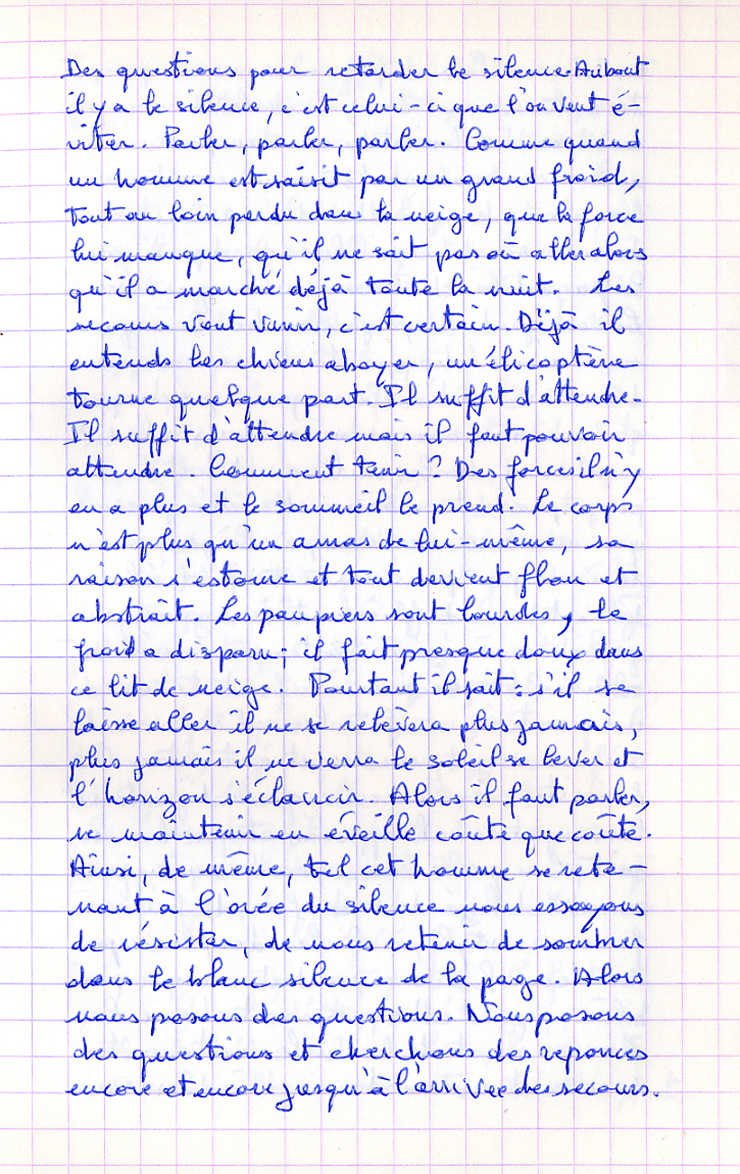 Des questions pour retarder le silence. Au bout
il y a le silence, c'est celui-ci que l'on veut é-
viter. Parler, parler, parler. Comme quand
un homme est saisit par un grand froid,
tout au loin perdu dans la neige, que la force
lui manque, qu'il ne sait pas où aller alors
qu'il a marché déjà toute la nuit. Les
secours vont venir, c'est certain. Déjà il
entends les chiens aboyer, un élicoptère
tourne quelque part. Il suffit d'attendre.
Il suffit d'attendre mais il faut pouvoir
attendre. Comment tenir ? Des forces il n'y
en a plus et le sommeil le prend. Le corps
n'est plus qu'un amas de lui-même, sa
raison s'estome et tout devient flou et
abstrait. Les paupiers sont lourdes, le
froid a disparu ; il fait presque doux dans
ce lit de neige. Pourtant il sait : s'il se
laisse aller il ne se relèvera plus jamais,
plus jamais il ne verra le soleil se lever et
l'horizon s'éclaircir. Alors il faut parler,
se maintenir en éveille coûte que coûte.
Ainsi, de même, tel cet homme se rete-
nant à l'orée du silence nous essayons
de résister, de nous retenir de sombrer
dans le blanc silence de la page. Alors
nous posons des questions. Nous posons
des questions et cherchons des reponces
encore et encore jusqu'à l'arrivée des secours.